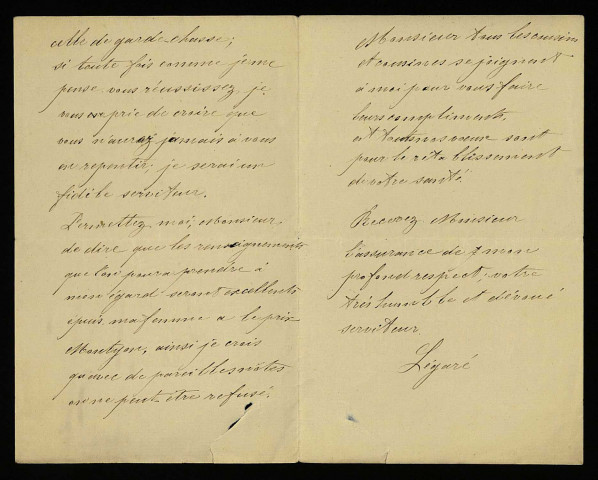 celle de garde-chasse;
si toute fois comme je me
pense vous réussissez, je
vous en prie de croire que
vous n'aurez jamais à vous
en repentir, je serai un
fidèle serviteur.
Permettez moi, Monsieur,
de dire que les renseignements
que l'on pourra prendre à
mon égard seront excellents
puis ma femme a le prix
Montyon, ainsi je crois
qu'avec de pareilles notes
on ne peut être refusé.
Monsieur tous les cousins
et cousines se joignent
à moi pour vous faire
leurs compliments,
et tous nos vœux sont
pour le rétablissement
de votre santé.
Recevez Monsieur
l'assurance de mon
profond respect, votre
très humble et dévoué
serviteur
Légaré